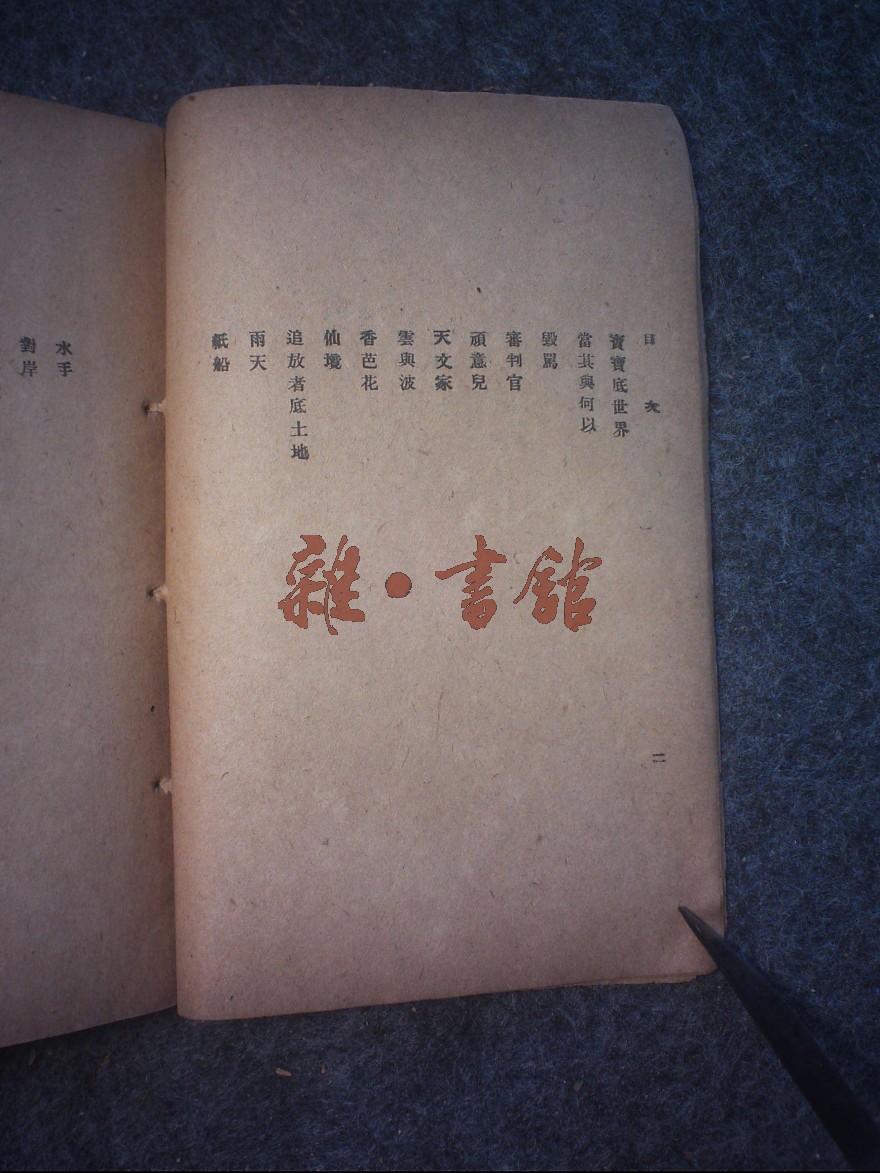 目次
寶寶底世界
當其與何以
毀罵
審判官
頑意兒
天文家
雲與波
香芭花
仙境
追放者底土地
雨天
紙船
二
水手
對岸
雜•書館